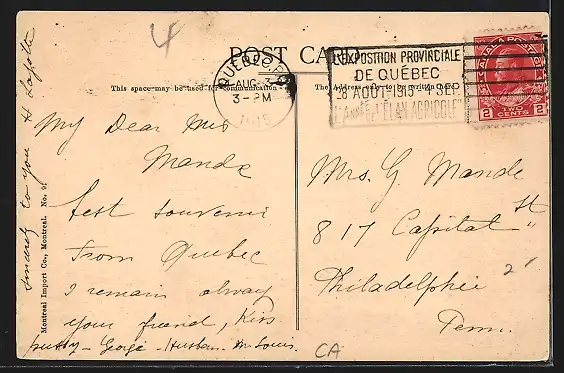 4
POST CARD
This space may be used for communication
The Address only to be written here
QUÉBEC, P.Q.
AUG 3
3 - PM
1915
EXPOSITION PROVINCIALE
DE QUÉBEC
28 AOUT - 1915 - 4 SEP.
L'ANNÉE DE "L'ÉLAN AGRICOLE"
CANADA POSTAGE
2 TWO CENTS 2
My Dear Mrs
Mande
best souvenir
From Quebec
I remain alway
your friend, Kiss
George - Husban Mr Louis.
sincerly to you H
Montreal Import Co., Montreal. No. 91
Mrs. G Mande
817 Capital St "
Philadelphie
Penn.
2
CA